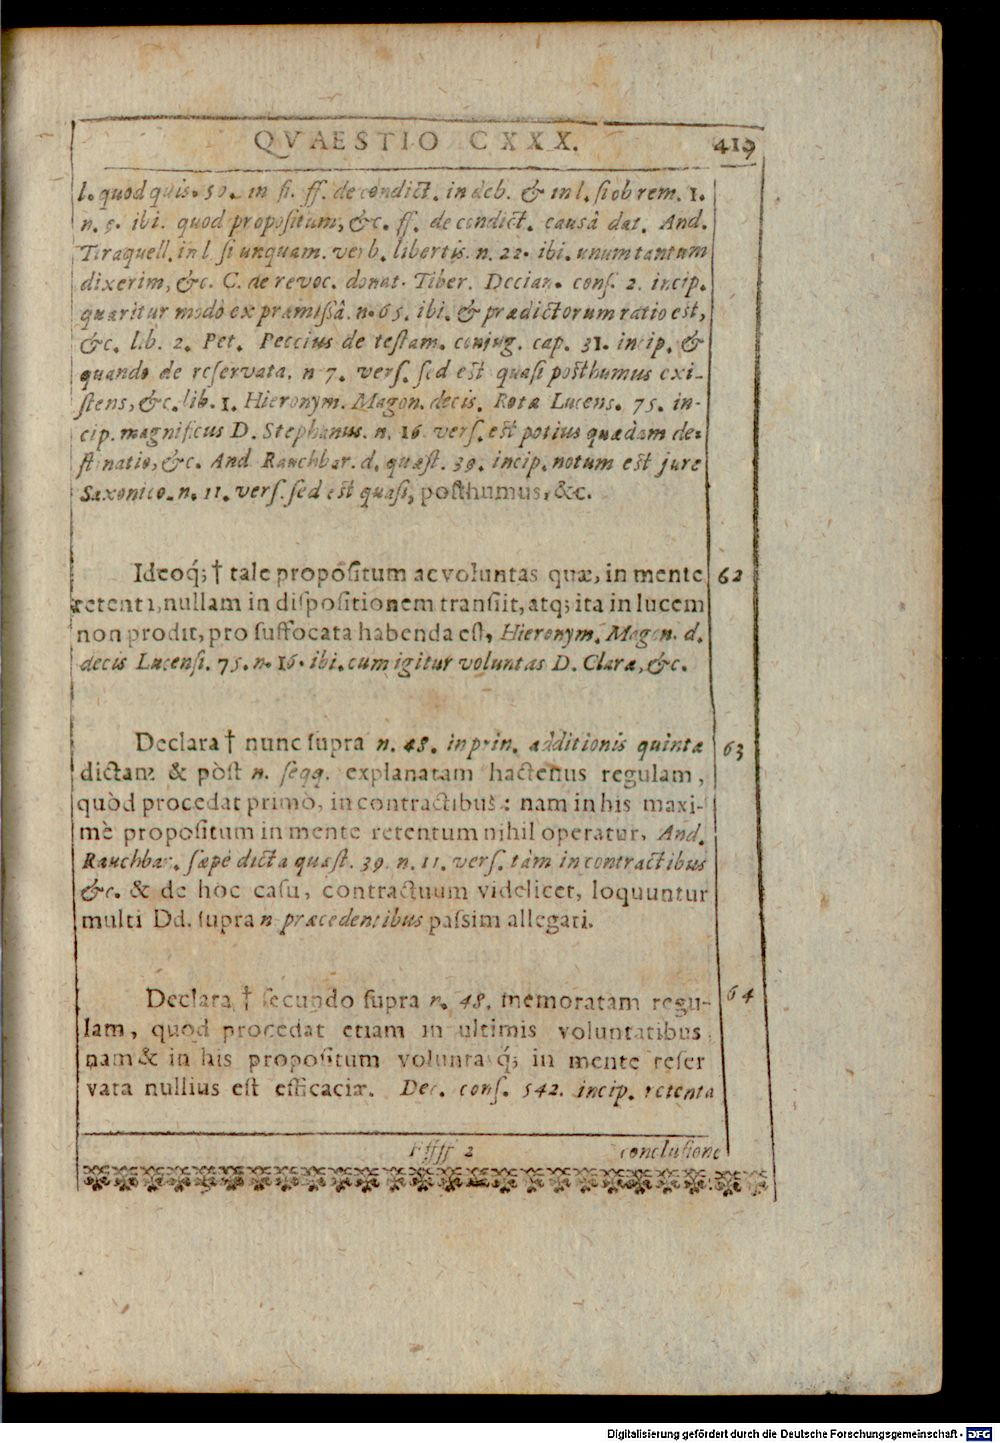 QVAESTIO CXXX. 419
l. quod quis. 50. in fi. ff. de condict. in deb. & in l. si ob rem. 1.
n. 9. ibi. quod propositum, &c. ff. de condict. causâ dat. And.
Tiraquell. in l. si unquam. verb. libertis. n. 22. ibi. unum tantum
dixerim, &c. C. de revoc. donat. Tiber. Decian. cons. 2. incip.
quæritur modò ex præmissâ. n. 65. ibi. & prædictorum ratio est,
&c. lib. 2. Pet. Peccius de testam. conjug. cap. 31. incip. &
quando de reservata. n 7. vers. sed est quasi posthumus exi-
stens, &c. lib. 1. Hieronym. Magon. decis. Rotæ Lucens. 75. in-
cip. magnificus D. Stephanus. n. 16. vers. est potius quædam de-
stinatio, &c. And Rauchbar. d. quæst. 39. incip. notum est jure
Saxonico. n. 11. vers. sed est quasi, posthumus, &c.
Ideoq́; † tale propositum ac voluntas quæ, in mente 62
retenta, nullam in dispositionem transiit, atq; ita in lucem
non prodit, pro suffocata habenda est, Hieronym. Magon. d.
decis Lucensi. 75. n. 16. ibi. cum igitur voluntas D. Claræ, &c.
Declara † nunc supra n. 48. in prin. additionis quintæ 63
dictam & pòst n. seqq. explanatam hactenus regulam,
quòd procedat primò, in contractibus: nam in his maxi-
mè propositum in mente retentum nihil operatur, And.
Rauchbar. sæpè dicta quæst. 39. n. 11. vers. tàm in contractibus
&c. & de hoc casu, contractuum videlicet, loquuntur
multi Dd. supra n præcedentibus passim allegati.
Declara † secundo supra n. 48. memoratam regu- 64
lam, quod procedat etiam in ultimis voluntatibus
nam & in his propositum voluntasq́; in mente reser
vata nullius est efficaciæ. Dec. cons. 542. incip. retenta
Fffff 2 conclusione
Digitalisierung gefördert durch die Deutsche Forschungsgemeinschaft - DFG